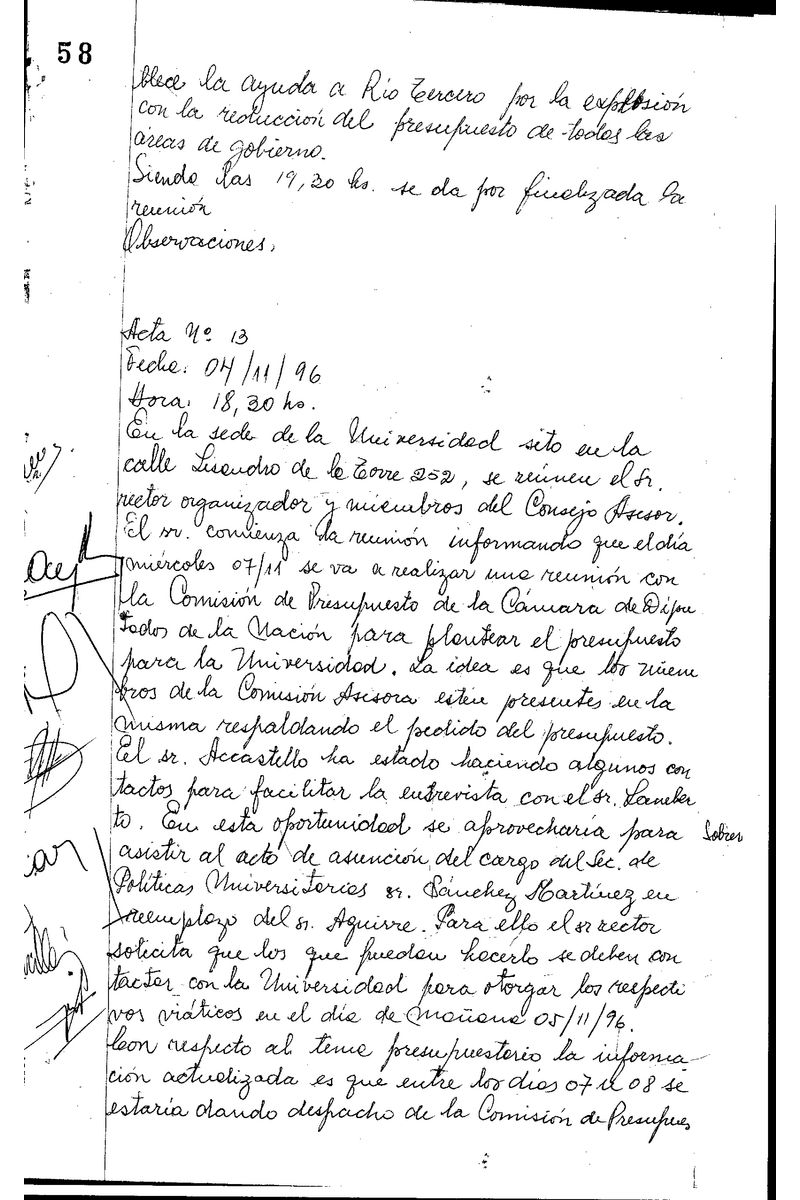 58
blece la ayuda a Río Tercero por la explosión
con la reducción del presupuesto de todas las
áreas de gobierno.
Siendo las 19,30 hs. se da por finalizada la
reunión
Observaciones,
Acta Nº 13
Fecha: 04/11/96
Hora: 18,30 hs.
En la sede de la Universidad sito en la
calle Lisandro de la Torre 252, se reúnen el Sr.
rector organizador y miembros del Consejo Asesor.
El sr. comienza la reunión informando que el día
miércoles 07/11 se va a realizar una reunión con
la Comisión de Presupuesto de la Cámara de Dipu
tados de la Nación para plantear el presupuesto
para la Universidad. La idea es que los miem
bros de la Comisión Asesora estén presentes en la
misma respaldando el pedido del presupuesto.
El sr. Accastello ha estado haciendo algunos con
tactos para facilitar la entrevista con el sr. Lamber
to. En esta oportunidad se aprovecharía para
asistir al acto de asunción del cargo del Sec. de
Políticas Universitarias sr. Sánchez Martínez en
reemplazo del sr. Aguirre. Para ello el sr rector
solicita que los que puedan hacerlo se deben con
tactar con la Universidad para otorgar los respecti
vos viáticos en el día de mañana 05/11/96.
Con respecto al tema presupuestario la informa
ción actualizada es que entre los días 07 u 08 se
estaría dando despacho de la Comisión de Presupues